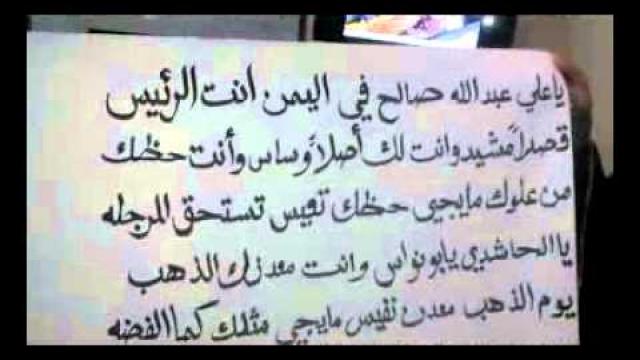 ياعلي عبدالله صالح في اليمن انت الرئيس
قصداً مشيد وانت لك أصلاً وساس وأنت حظك
من علوك مايجيى حظك تعيس تستحق المرجله
يا الحاشدي يابونواس وانت معدنك الذهب
يوم الذهب معدن نفيس مايجي مثلك كما الفضه